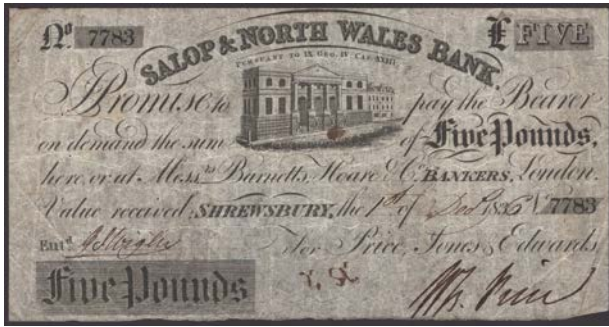 No. 7783 £ FIVE
SALOP & NORTH WALES BANK.
PURSUANT TO IX GEO. IV CAP. XXIII
I Promise to pay the Bearer
on demand the sum of Five Pounds,
here, or at Messrs. Barnetts, Hoare & Co. BANKERS, London.
Value received, SHREWSBURY, the 1st of Decr. 1836 No. 7783
Entd. For Price, Jones & Edwards
Five Pounds